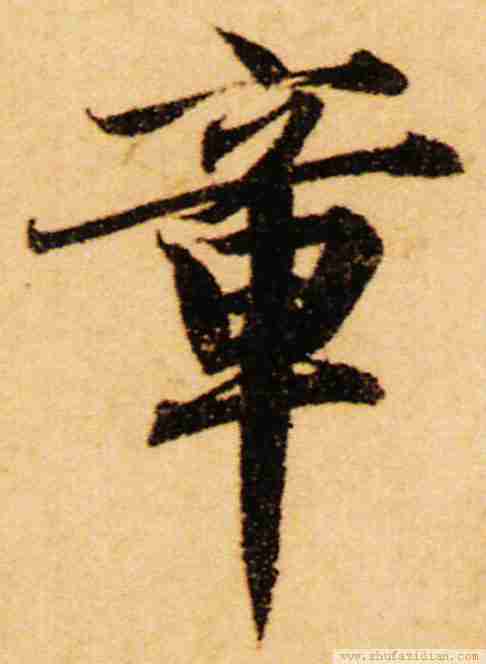 章
www.shufazidian.com